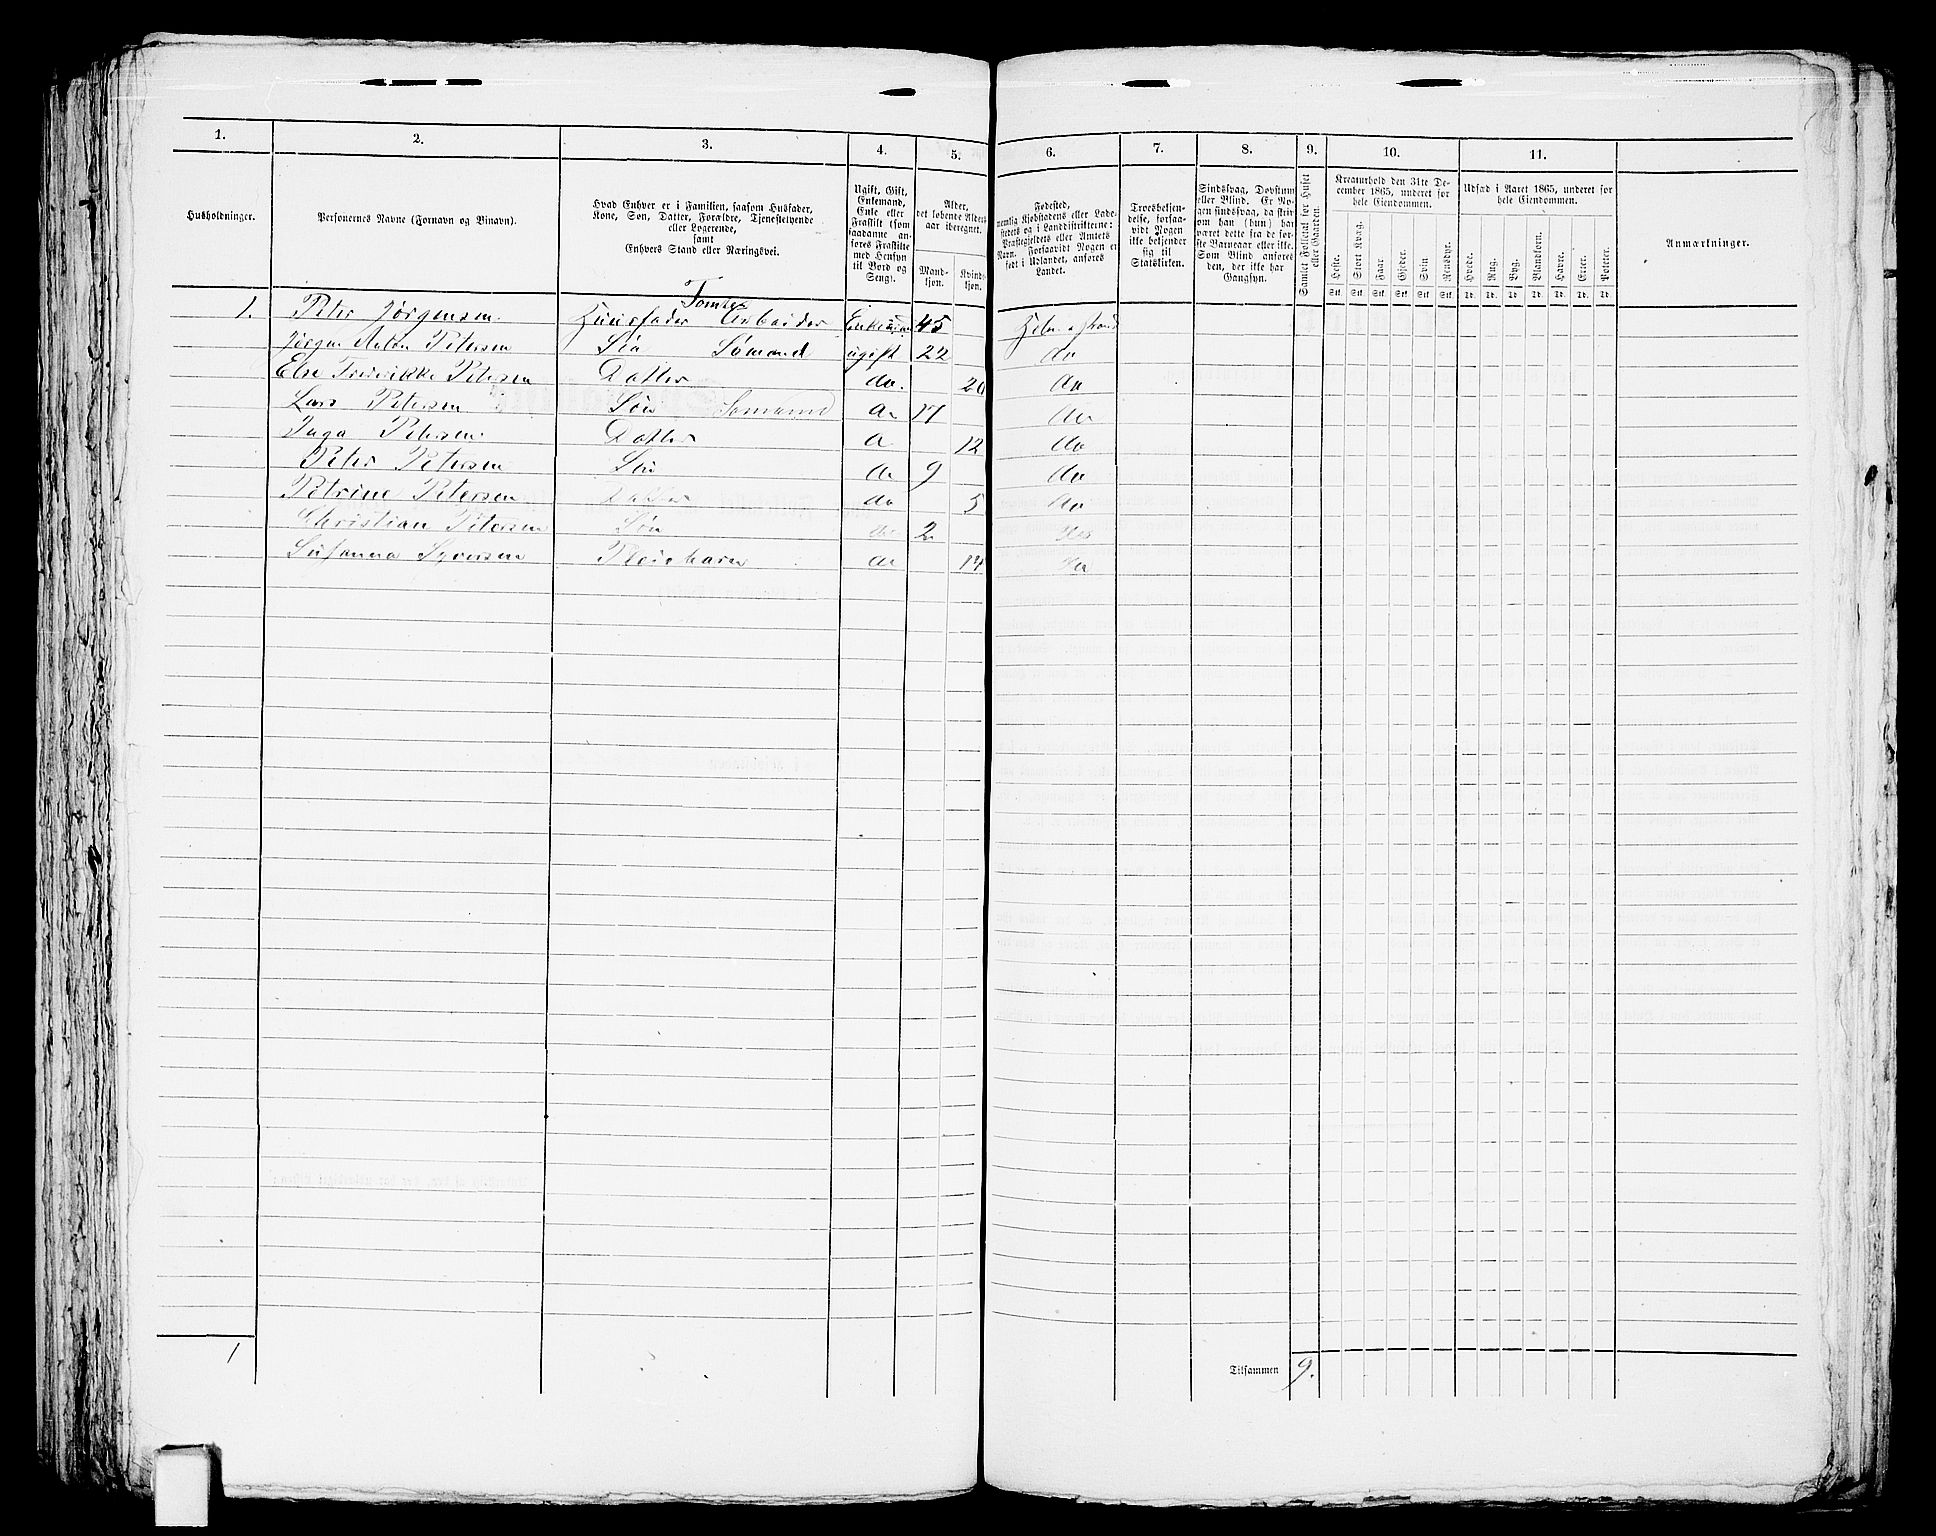 1. 2. 3. 4. 5. 6. 7. 8. 9. 10. 11.
Husholdninger.
Personernes Navne (Fornavn og Binavn).
Hvad Enhver er i Familien, saasom Husfader,
Kone, Søn, Datter, Forældre, Tjenestetyende
eller Logerende,
samt
Enhvers Stand eller Næringsvei.
Ugift, Gift,
Enkemand,
Enke eller
Fraskilt (som
saadanne an-
føres Fraskilte
med Hensyn
til Bord og
Seng).
Alder,
det løbende Alders-
aar iberegnet.
Mand-
kjøn.
Kvind-
kjøn.
Fødested,
nemlig Kjøbstadens eller Lade-
stedets og i Landdistrikterne:
Præstegjeldets eller Amtets
Navn. Forsaavidt Nogen er
født i Udlandet, anføres
Landet.
Troesbekjen-
delse, forsaa-
vidt Nogen
ikke bekjender
sig til
Statskirken.
Sindssvag, Døvstum
eller Blind. Er No-
gen sindssvag, da skriv
om han (hun) har
været dette fra de før-
ste Barneaar eller ikke.
Som Blind anføres
den, der ikke har
Gangsyn.
Gamlet Folketal for Huset
eller Gaarden.
Kreaturhold den 31te De-
cember 1865, underet for
hele Eiendommen.
Heste. Stort Kvæg. Faar Gjeder. Svin Rensdyr.
Stk. Stk. Stk. Stk. Stk. Stk.
Udsæd i Aaret 1865, underet for
hele Eiendommen.
Hvede. Rug. Byg. Blandkorn. Havre. Erter. Poteter.
Td. Td. Td. Td. Td. Td. Td.
Anmærkninger.
Tomter
1. Peter Jørgensen. Huusfader Arbeider Enkemand 45
Jørgen Anton Petersen Søn Sømand ugift 22 do
Else Fredrikke Petersen Datter do. 20 do
Lars Petersen Søn Sømand do 17 do
Inga Petersen Datter do 12 do
Peter Petersen Søn do 9 do
Petrine Petersen Datter do 5 do
Christian Petersen Søn do 2 do
Susanna Syversen Pleiebarn do 14 do
1 Tilsammen 9.